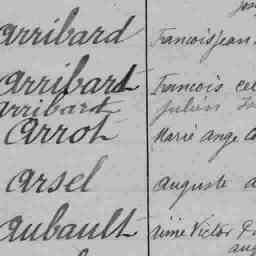 Arribard François Jean
Arribart François Cel
Arribart Julien
Carrot Marie Ange
Arsel Auguste
Aubault Aimé Victor
aug